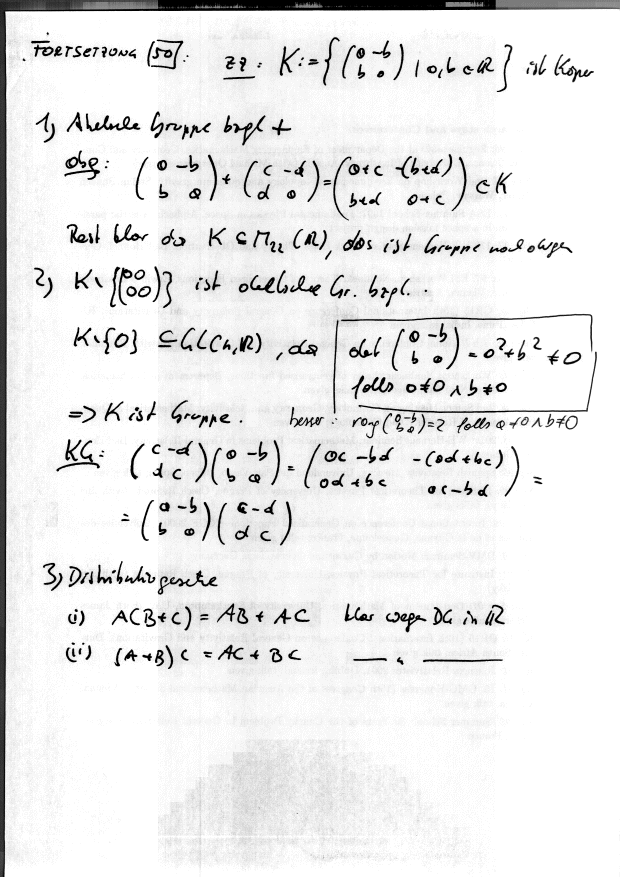 FORTSETZUNG [50]: ZZ: K := { (a -b / b a) | a, b ∈ ℝ } ist Körper
1) Abelsche Gruppe bzgl +
abg: (a -b / b a) + (c -d / d a) = (a+c -(b+d) / b+d a+c) ∈ K
Rest klar da K ⊆ M₂₂(ℝ), das ist Gruppe nach oben
2) K \ {(00 / 00)} ist abelsche Gr. bzgl. ·
K \ {0} ⊆ GL(n, ℝ), da det (a -b / b a) = a² + b² ≠ 0
falls a ≠ 0 ∧ b ≠ 0
=> K ist Gruppe. besser: rang (a -b / b a) = 2 falls a ≠ 0 ∧ b ≠ 0
KG: (c -d / d c) (a -b / b a) = (ac - bd -(ad + bc) / ad + bc ac - bd) =
= (a -b / b a) (c -d / d c)
3) Distributivgesetze
(i) A(B+C) = AB + AC klar wegen DG in ℝ
(ii) (A+B)C = AC + BC —— " ——